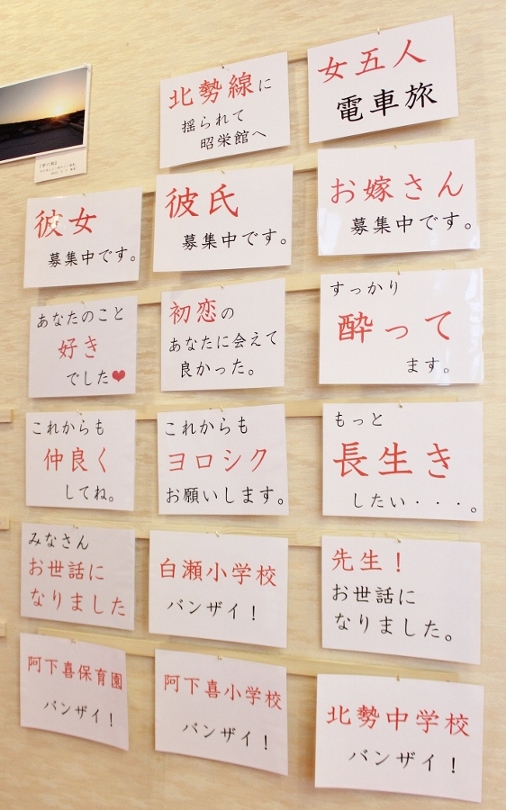 北勢線に
揺られて
昭栄館へ
女五人
電車旅
彼女
募集中です。
彼氏
募集中です。
お嫁さん
募集中です。
あなたのこと
好き
でした❤
初恋の
あなたに会えて
良かった。
すっかり
酔って
ます。
これからも
仲良く
してね。
これからも
ヨロシク
お願いします。
もっと
長生き
したい・・・。
みなさん
お世話に
なりました
白瀬小学校
バンザイ！
先生！
お世話に
なりました。
阿下喜保育園
バンザイ！
阿下喜小学校
バンザイ！
北勢中学校
バンザイ！